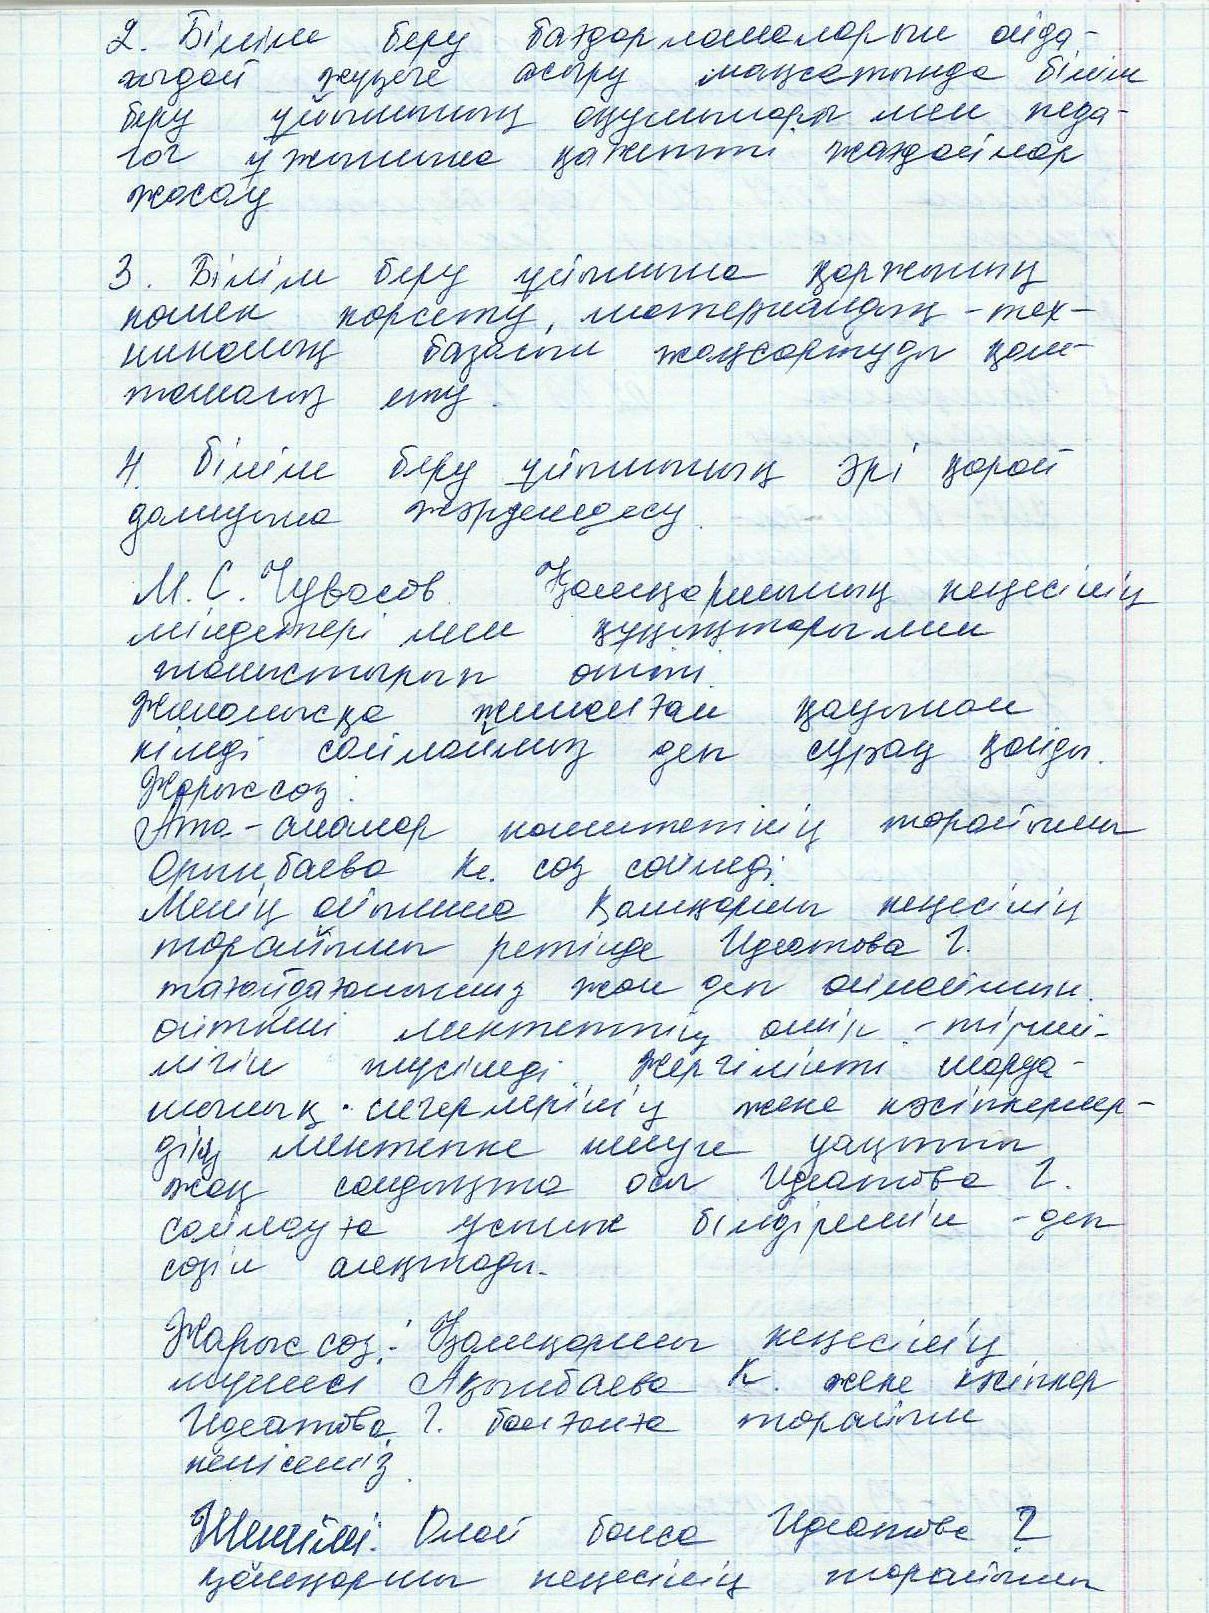 2. Білім беру бағдарламаларын ойда-
ғыдай жүзеге асыру мақсатында білім
беру ұйымының оқушылары мен педа-
гог ұжымына қажетті жағдайлар
жасау
3. Білім беру ұйымына қаржының
көмек көрсету, материалдық-тех-
никалық базасын жақсартуды қам-
тамасыз ету.
4. Білім беру ұйымының әрі қарай
дамуына жәрдемдесу.
М.С. Чувасов. Қамқоршының кеңесінің
міндеттері мен құқықтарымен
таныстырып өтті.
Жиналысқа жиналған қауымнан
кімді сайлаймыз деп сұрақ қойды.
Жарыссөз:
Ата-аналар комитетінің төрайымы
Орынбаева К. сөз сөйледі
Менің ойымша Қамқоршы кеңесінің
төрайымы ретінде Идеятова Г.
тағайдағанымыз жөн деп ойлаймын.
өйткені мектептің өмір-тірші-
лігін түсінеді. Жергілікті шаруа-
шылық жене кәсіпкерлер-
дің мектепке келуге уақыты
жоқ сондықта осы Идеятова Г.
сайлауға ұсыныс білдіремін - деп
сөзін аяқтады.
Жарыссөз: Қамқоршы кеңесінің
мүшесі Ақынбаева К. жене кәсіпкер
Идеятова Г. болғанға төрайым
келісеміз.
Шешімі: Олай болса Идеятова Г
қамқоршы кеңесінің төрайымы